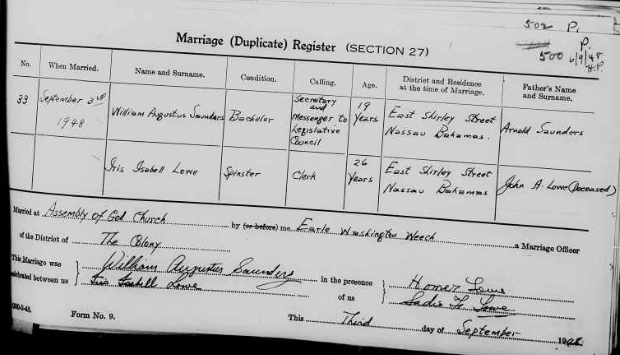 502 P.
P.
500 6/9/48
H.P.
Marriage (Duplicate) Register (SECTION 27)
No. When Married. Name and Surname. Condition. Calling. Age. District and Residence at the time of Marriage. Father's Name and Surname.
33 September 3rd 1948 William Augustus Saunders Bachelor Secretary and Messenger to Legislative Council 19 Years East Shirley Street Nassau Bahamas. Arnold Saunders
Iris Isabell Lowe Spinster Clerk 26 Years East Shirley Street Nassau Bahamas John A. Lowe (Deceased)
Married at Assembly of God Church by (or before) me Earle Washington Weech a Marriage Officer
of the District of The Colony
This Marriage was William Augustus Saunders in the presence Homer Lowe
celebrated between us Iris Isabell Lowe of us Sadie H. Lowe
This Third day of September 1948
Form No. 9.